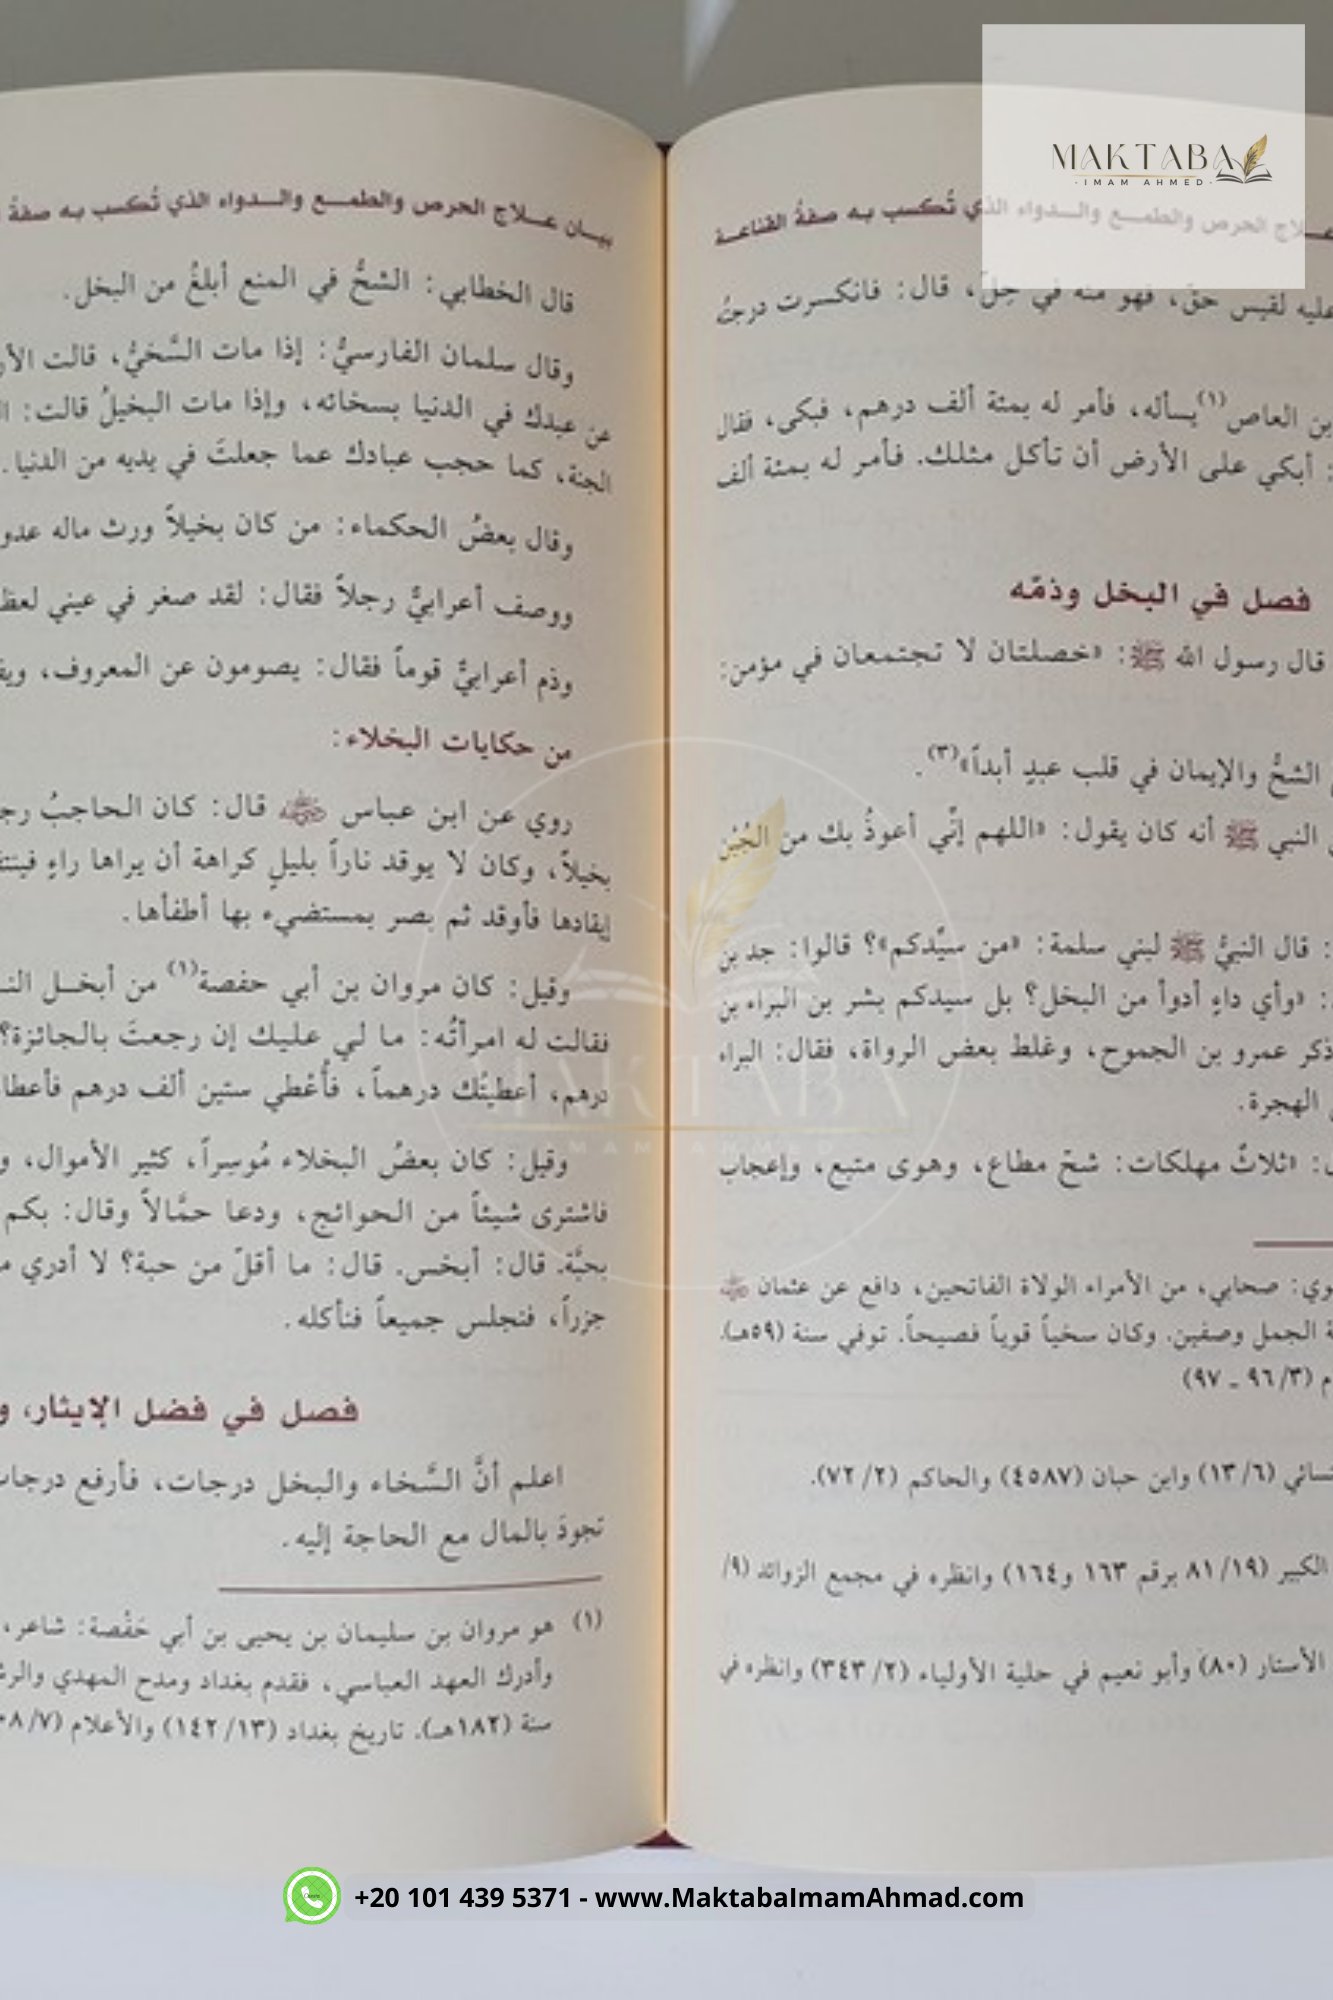 MAKTABA
IMAM AHMED
علاج الحرص والطمـع والـدواء الذي تُكسب به صفةُ القناعة
عليه لقيس حقّ، فهو منه في حِلّ، قال: فانكسرت درجتُه
بن العاص(١) يسأله، فأمر له بمئة ألف درهم، فبكى، فقال
: أبكي على الأرض أن تأكل مثلك. فأمر له بمئة ألف
فصل في البخل وذمّه
قال رسول الله ﷺ: «خصلتان لا تجتمعان في مؤمن:
الشحُّ والإيمان في قلب عبدٍ أبداً»(٣).
النبي ﷺ أنه كان يقول: «اللهم إنِّي أعوذُ بك من الجُبْن
: قال النبيُّ ﷺ لبني سلمة: «من سيِّدكم»؟ قالوا: جد بن
: «وأي داءٍ أدوأ من البخل؟ بل سيدكم بشر بن البراء بن
ذكر عمرو بن الجموح، وغلط بعض الرواة، فقال: البراء
الهجرة.
: «ثلاثٌ مهلكات: شحّ مطاع، وهوى متبع، وإعجاب
وي: صحابي، من الأمراء الولاة الفاتحين، دافع عن عثمان رضي الله عنه
ة الجمل وصفين. وكان سخياً قوياً فصيحاً. توفي سنة (٥٩هـ).
م (٣/ ٩٦ ـ ٩٧)
نسائي (٦/ ١٣) وابن حبان (٤٥٨٧) والحاكم (٢/ ٧٢).
الكبير (١٩/ ٨١ برقم ١٦٣ و١٦٤) وانظره في مجمع الزوائد (٩/
الأستار (٨٠) وأبو نعيم في حلية الأولياء (٢/ ٣٤٣) وانظره في
بيـان عـلاج الحرص والطمـع والـدواء الذي تُكسب به صفةُ
قال الخطابي: الشحُّ في المنع أبلغُ من البخل.
وقال سلمان الفارسيُّ: إذا مات السَّخيُّ، قالت الأر
عن عبدك في الدنيا بسخائه، وإذا مات البخيلُ قالت: ا
الجنة، كما حجب عبادك عما جعلتَ في يديه من الدنيا.
وقال بعضُ الحكماء: من كان بخيلاً ورث ماله عدو
ووصف أعرابيٌّ رجلاً فقال: لقد صغر في عيني لعظ
وذم أعرابيٌّ قوماً فقال: يصومون عن المعروف، ويف
من حكايات البخلاء:
روي عن ابن عباس رضي الله عنه قال: كان الحاجبُ رجـ
بخيلاً، وكان لا يوقد ناراً بليلٍ كراهة أن يراها راءٍ فينتف
إيقادها فأوقد ثم بصر بمستضيء بها أطفأها.
وقيل: كان مروان بن أبي حفصة(١) من أبخـل النـ
فقالت له امرأتُه: ما لي عليك إن رجعتَ بالجائزة؟
درهم، أعطيتُك درهماً، فأُعْطي ستين ألف درهم فأعطا
وقيل: كان بعضُ البخلاء مُوسِراً، كثير الأموال، و
فاشترى شيئاً من الحوائج، ودعا حمَّالاً وقال: بكم
بحبَّة. قال: أبخس. قال: ما أقلّ من حبة؟ لا أدري م
جزراً، فنجلس جميعاً فنأكله.
فصل في فضل الإيثار، و
اعلم أنَّ السَّخاء والبخل درجات، فأرفع درجات
تجودَ بالمال مع الحاجة إليه.
(١) هو مروان بن سليمان بن يحيى بن أبي حَفْصة: شاعر،
وأدرك العهد العباسي، فقدم بغداد ومدح المهدي والرش
سنة (١٨٢هـ). تاريخ بغداد (١٣/ ١٤٢) والأعلام (٧/ ٠٨
MAKTABA
IMAM AHMED
+20 101 439 5371 - www.MaktabaImamAhmad.com